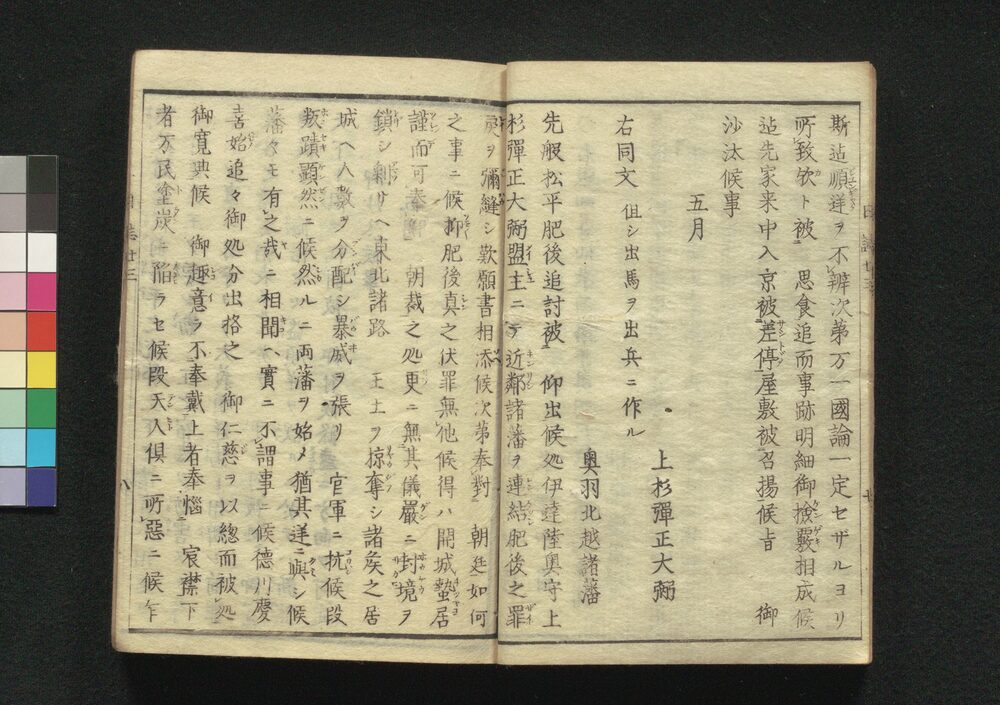 斯迠順逆ヲ不辨次第万一國論一定セザルヨリ
所致欤ト被　思食追而事跡明細御撿覈相成候
迠先家来中入京被差停屋敷被召揚候旨　御
沙汰候事
五月
上杉彈正大弼
右同文　但シ出馬ヲ出兵ニ作ル
奥羽北越諸藩
先般松平肥後追討被　仰出候処伊達陸奥守上
杉彈正大弼盟主ニテ近鄰諸藩ヲ連結肥後之罪
戻ヲ彌縫シ歎願書相添候次第奉對　朝廷如何
之事ニ候抑肥後真之伏罪無他候得ハ開城蟄居
謹而可奉　朝裁之処更ニ無其儀嚴ニ封境ヲ
鎖シ剰サヘ東北諸路　王土ヲ掠奪シ諸矦之居
城ヘ人数ヲ分配シ暴威ヲ張リ　官軍ニ抗候段
叛蹟顕然ニ候然ルニ両藩ヲ始メ猶其逆ニ與シ候
藩々モ有之哉ニ相聞ヘ實ニ不謂事ニ候德川慶
喜始追々御処分出格之　御仁慈ヲ以總而被処
御寛典候　御趣意ヲ不奉戴上者奉惱　宸襟下
者万民塗炭ニ陷ラセ候段天人俱ニ所惡ニ候乍
日誌廿三
八